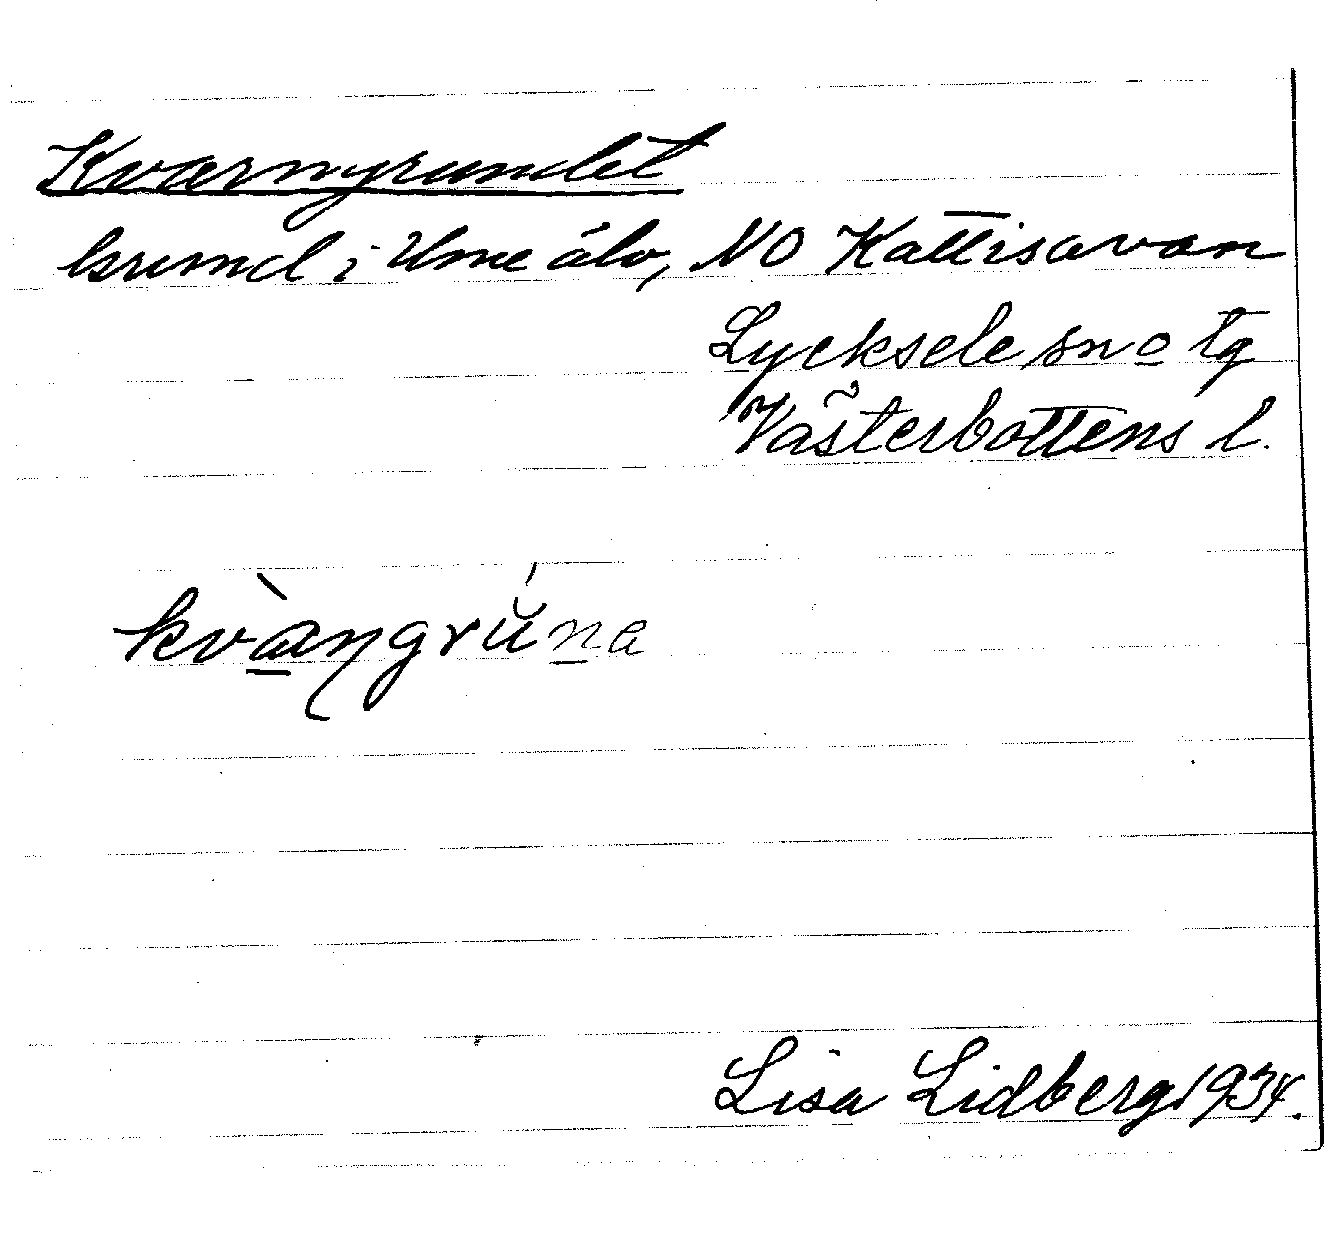 Kvarngrundet
grund i Ume älv, NO Kattisavan
Lycksele sn o tg
Västerbottens l.
kvàŋgrúna
Lisa Lidberg 1934.